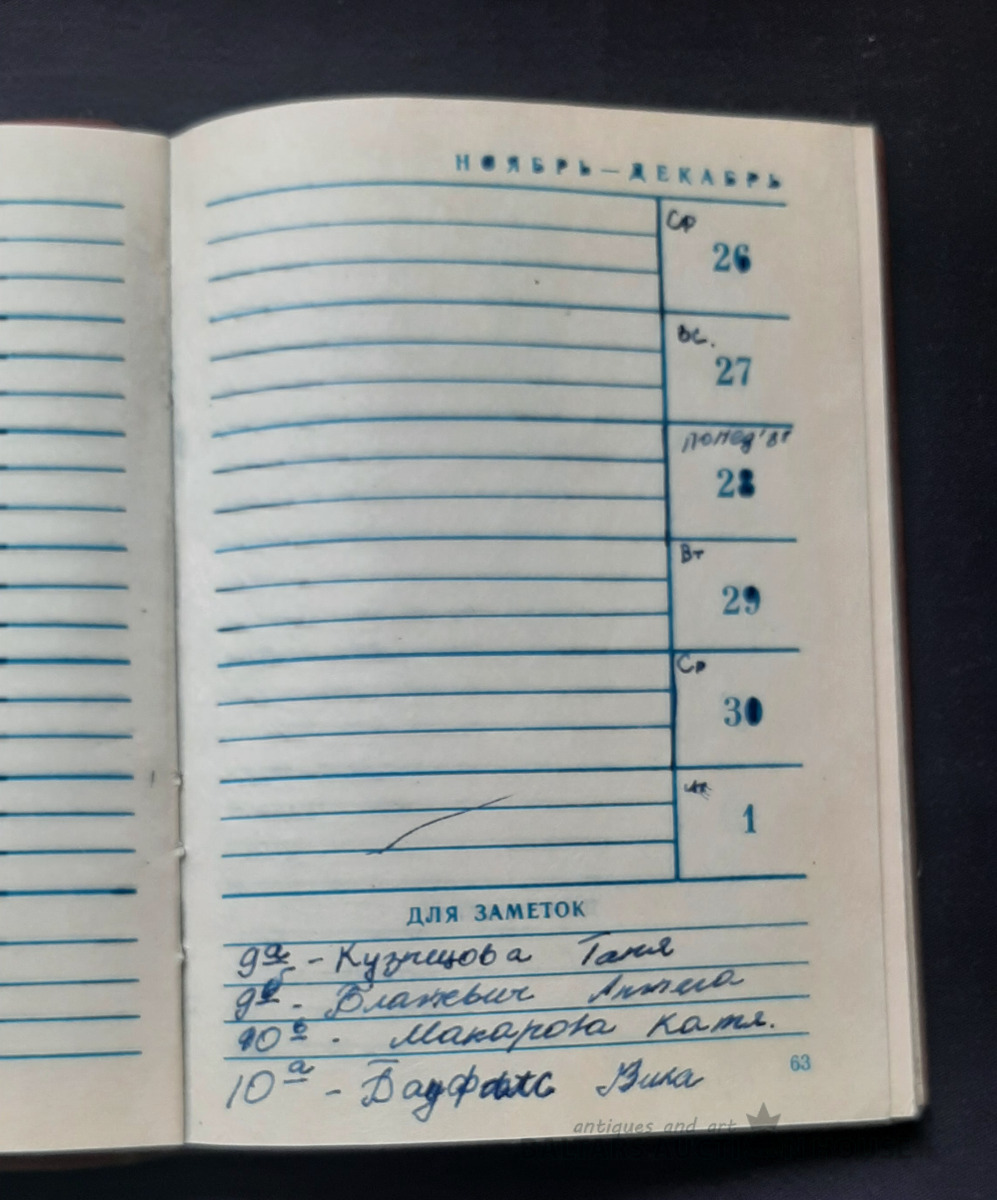 НОЯБРЬ — ДЕКАБРЬ
Ср
26
Вс.
27
28
Вт
29
Ср
30
1
ДЛЯ ЗАМЕТОК
9а - Кузнецова Таня
9б - Блажевич Анжела
10б - Макарова Катя.
10а - Вика
63
antiques and art